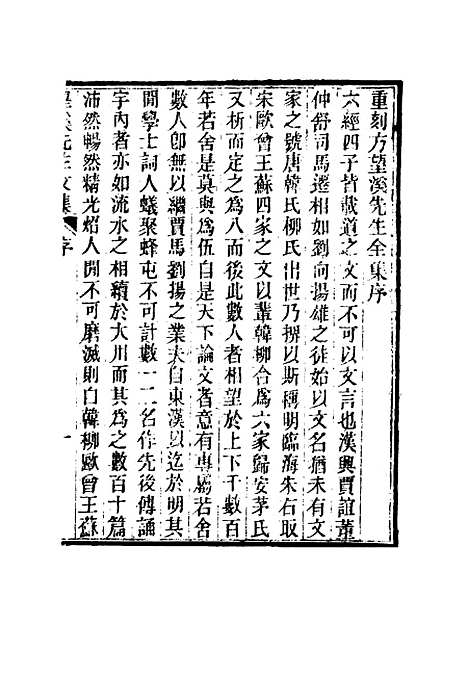 重刻方望溪先生全集序
六經四子皆載道之文而不可以文言也漢興賈誼董
仲舒司馬遷相如劉向揚雄之徒始以文名猶未有文
家之號唐韓氏柳氏出世乃揅以斯稱明臨海朱右取
宋歐曾王蘇四家之文以輩韓柳合爲六家歸安茅氏
又析而定之爲八而後此數人者相望於上下千數百
年若舍是莫與爲伍自是天下論文者意有專屬若舍
數人卽無以繼賈馬劉揚之業夫自東漢以迄於明其
閒學士詞人蟻聚蜂屯不可計數一二名作先後傳誦
宇內者亦如流水之相續於大川而其爲之數百十篇
沛然暢然精光熖人閒不可磨滅則自韓柳歐曾王蘇
望溪先生文集 序 一